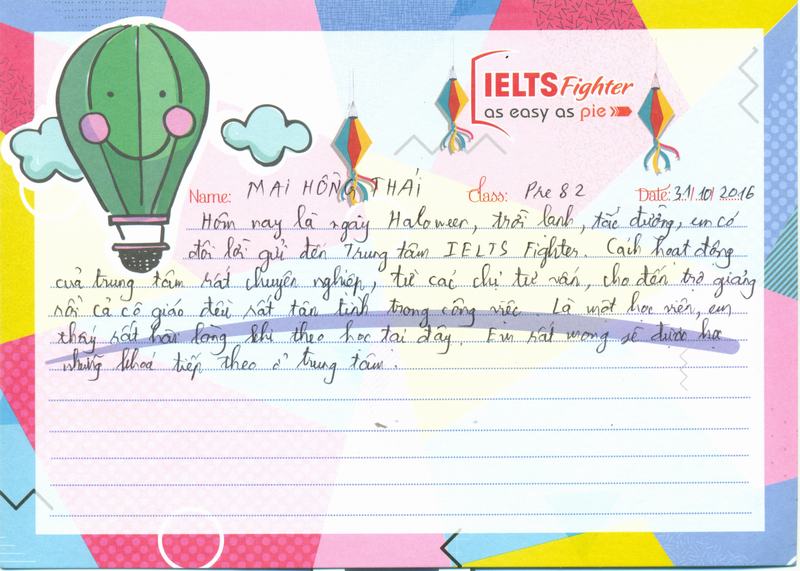 IELTS Fighter
as easy as pie
Name: MAI HỒNG THÁI Class: Pre 82 Date: 31/10/2016
Hôm nay là ngày Haloween, trời lạnh, tắc đường, em có
đôi lời gửi đến Trung tâm IELTS Fighter. Cách hoạt động
của trung tâm rất chuyên nghiệp, từ các chị tư vấn, cho đến trợ giảng
rồi cả cô giáo đều rất tận tình trong công việc. Là một học viên, em
thấy rất hài lòng khi theo học tại đây. Em rất mong sẽ được học
những khoá tiếp theo ở trung tâm.